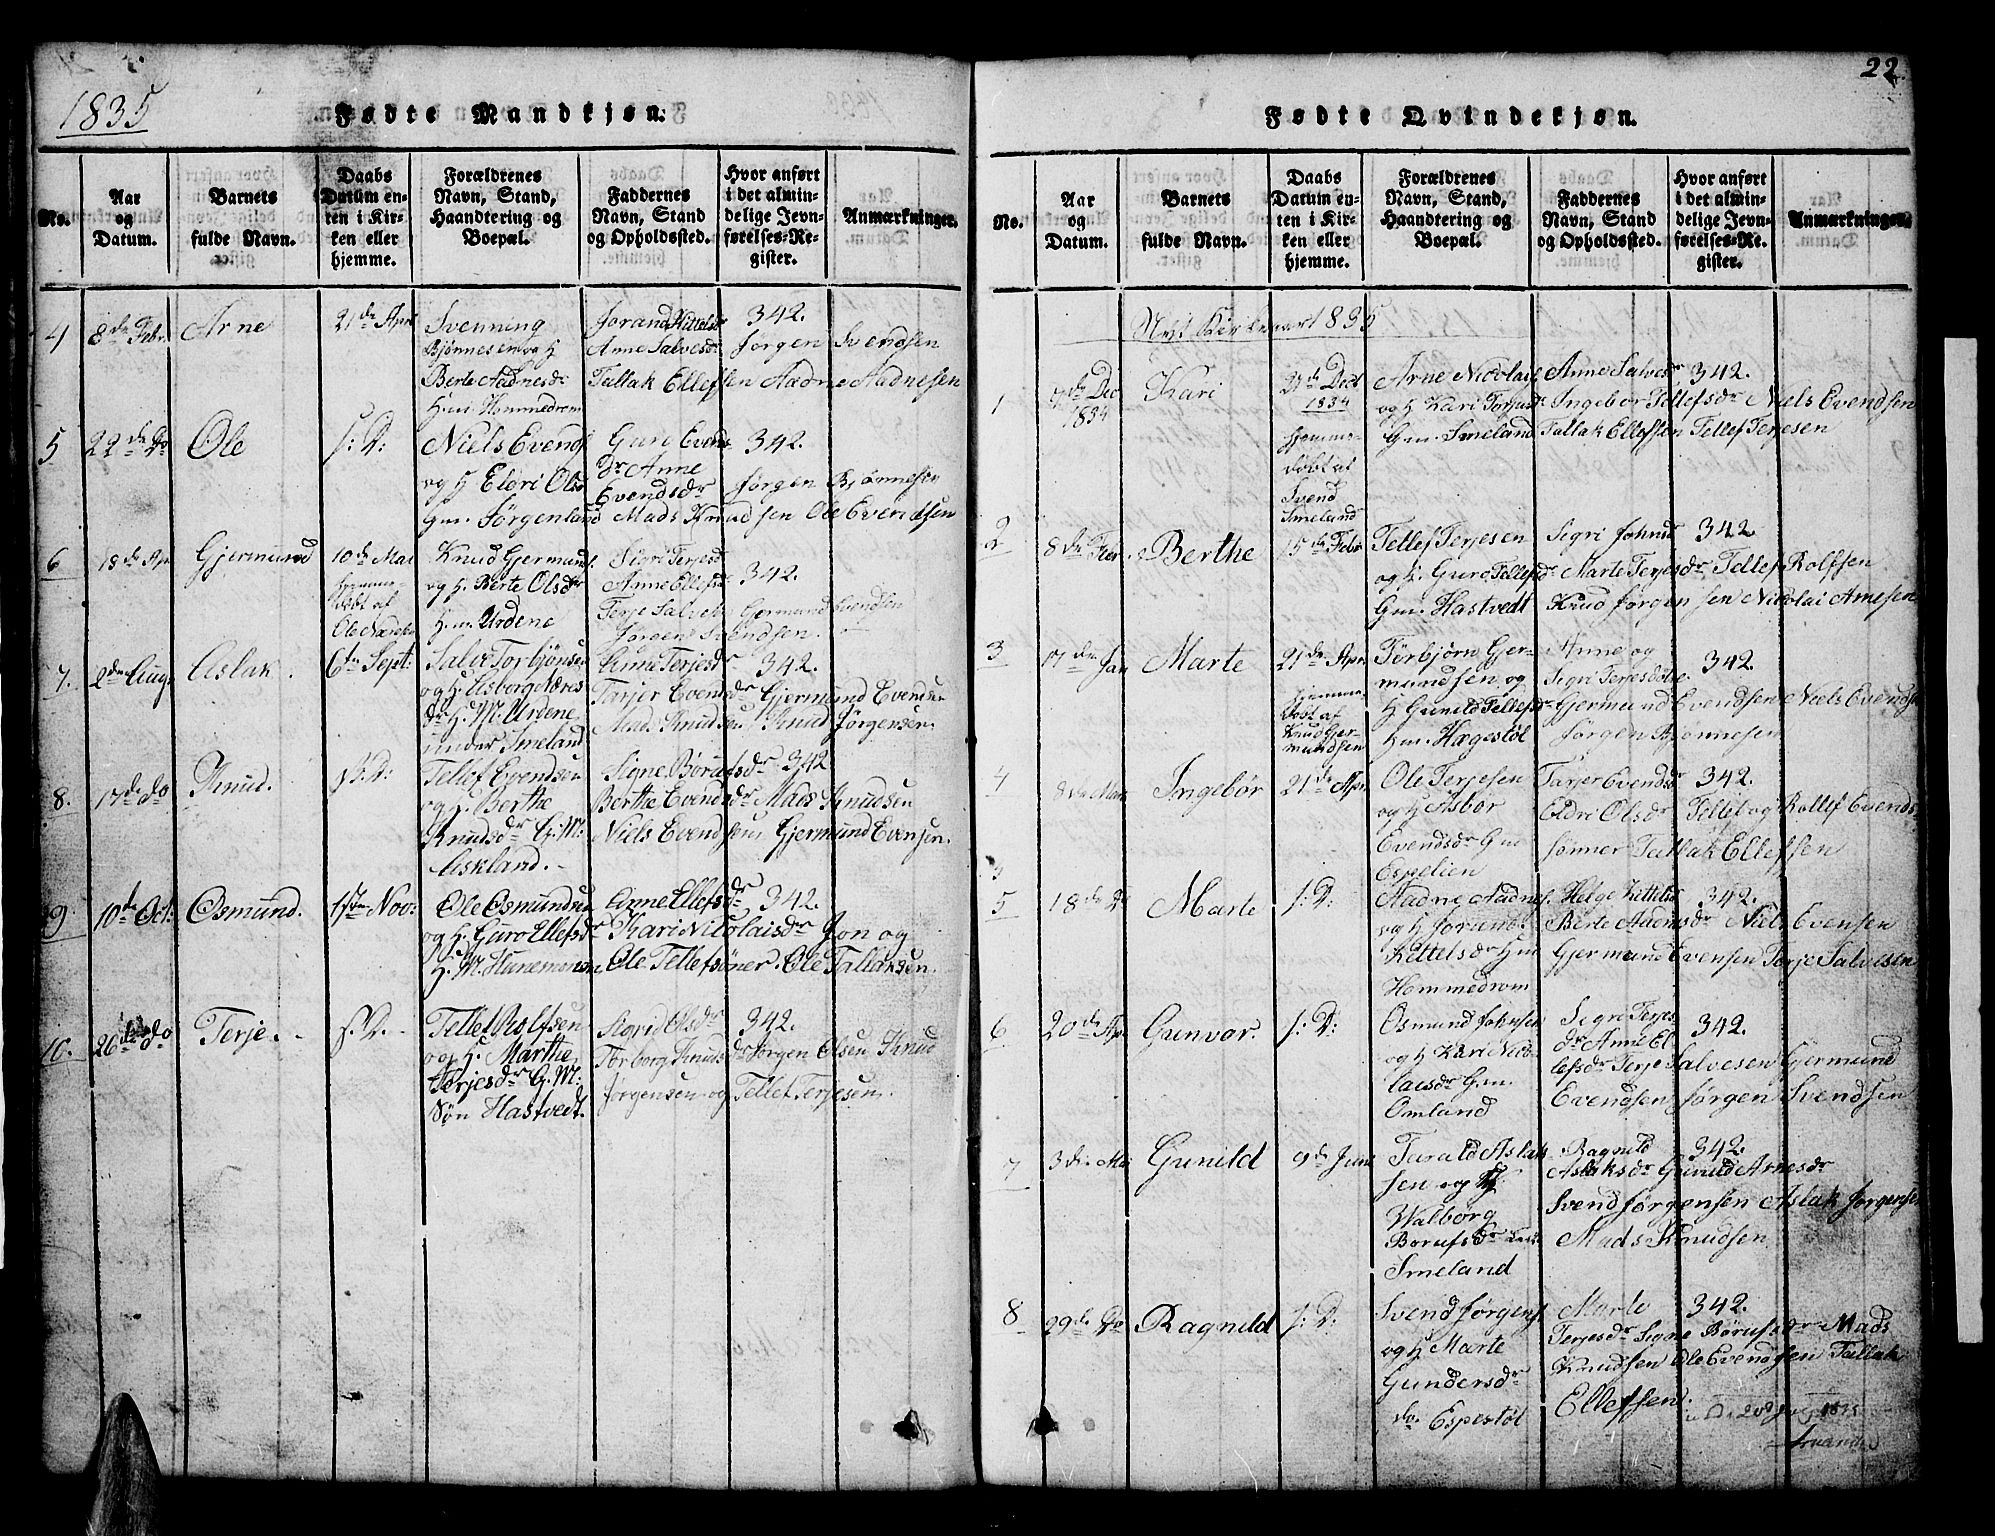 1835
Fødte Mandkjøn.
No.
Aar
og
Datum.
Barnets
fulde Navn.
Daabs
Datum en-
ten i Kir-
ken eller
hjemme.
Forældrenes
Navn, Stand,
Haandtering og
Boepæl.
Faddernes
Navn, Stand
og Opholdssted.
Hvor anført
i det almin-
delige Jevn-
førelses-Re-
gister.
Anmærkninger.
4
8de Febr.
Arne
21de Apr
Svenning
Bjønnesen og H
Berte Aadnesdr
Hm Hommedrom
Jorand Kittelsdr 342.
Anne Salvesdr Jørgen Svendsen
Tallak Ellefsen Aadne Aadnesen
5
22de Do
Ole
s: D:
Niels Evends
og H Eldri Olsd
Gm. Jørgenland
Guro Evens 342.
dr Anne
Evendsdr Jørgen Bjønnesen
Mads Knudsen Ole Evendsen
6
18de Apr
Gjermund
10de Mai
hjemme-
døbt af
Ole Næresen
Knud Gjermunds.
og H. Berte Olsdr
H.m. Urdene
Sigri Terjesd
Anne Ellefsdr 342.
Terje Salves Gjermund Evendsen
Jørgen Svendsen.
7.
2den Aug.
Aslak.
6te Sept:
Salve Torbjønsen
og H. Asberg Næres
dr H. M. Urdene
under Smeland
Anne Terjesdr 342.
Tarjer Evensdr Gjermund Evendsen
Mads Knudsen Knud Jørgensen.
8.
17de do
Knud.
s: D:
Tellef Evendsen
og H. Berthe
Knudsdr G: M:
Askland.-
Signe Børufsdr 342
Berthe Evensdr Mads Knudsen
Niels Evendsen, Gjermund Evensen.
9.
10de Oct:
Osmund.
15de Nov:
Ole Osmundsen
og H. Guro Ellefsdr
H. M. Hunemonen
Anne Ellefsdr 342.
Kari Nicolaisdr Jon og
Ole Tellefsöner. Ole Tallaksen.
10.
26de do
Terje.-
s. D.
Tellef Rolfsen
og H. Marthe
Terjesdr G. M:
Søn Hastvedt.
Sigrid Olsdr 342.
Torborg Knudsdr Jørgen Olsen Knud
Jørgensen og Tellef Terjesen.
22.
Fødte Qvindekjøn.
No.
Aar
og
Datum.
Barnets
fulde Navn.
Daabs
Datum en-
ten i Kir-
ken eller
hjemme.
Forældrenes
Navn, Stand,
Haandtering og
Boepæl.
Faddernes
Navn, Stand
og Opholdssted.
Hvor anført
i det almin-
delige Jevn-
førelses-Re-
gister.
Anmærkninger.
Nyt Kirkeaar 1835
1
7de Dec
1834
Kari
21de Dec
1834
hjemme-
døbt af
Svend
Smeland
Arne Nicolais
og H Kari Torjusdr
Gm. Smeland
Anne Salvesdr 342.
Ingebor Tellefsdr Niels Evendsen
Tallak Ellefsen Tellef Terjesen
2
8de
Berthe
15de Febr
Tellef Terjesen
og H. Guro Tellefsdr
Gm. Hastvedt
Sigri Johnsdr 342.
Marte Terjesdr Tellef Rolfsen
Knud Jørgensen Nicolai Arnesen
3
17de Jan
Marte
21de Apr.
hjemme
døbt af
Knud Gjer-
mundsen
Tørbjørn Gjer-
mundsen og
H Gunild Tellefsdr
Hm. Hægestøl
Anne og
Sigri Terjesdøtre. 342.
Gjermund Evendsen Niels Evends
Jørgen Bjønnesen
4
8de Mars
Ingebør
21de Apr.
Ole Terjesen
og H Asbor
Evendsdr Gm
Espelien
Tarjer Evendsdr 342.
Eldri Olsdr Tellef og Rollef Evends
sønner Tallak Ellefsen
5
18de Do
Marte
s: D:
Aadne Aadnes.
og H Jorand
Kittelsdr Hm
Hommedrom
Helge Kittelsdr 342.
Berte Aadnesdr Niels Evensen
Gjermund Evensen Terje Salvesen
6
20de Apr.
Gunvor.
s: D:
Osmund Johnsen
og H Kari Nico-
laesdr Gm.
Omland
Sigri Terjes 342.
dr Anne El
lefsdr Terje Salvesen Gjermund
Evendsen Jørgen Svendsen
7
3de Mai
Gunild
9de Juni
Tarald Aslak
sen og H
Walborg
Borufsdr
Smeland
Ragnild 342.
Aslaksdr Gunild Arnesdr
Svend Jørgensen Aslak Jørgensen
Mads Knudsen
8
29de Do
Ragnild
s: D:
Svend Jørgens.
og H Marte
Gundersdr
do. Espestøl
Marte 342.
Terjesdr Signe Børufsdr Mads
Knudsen Ole Evendsen Tallak
Ellefsen.